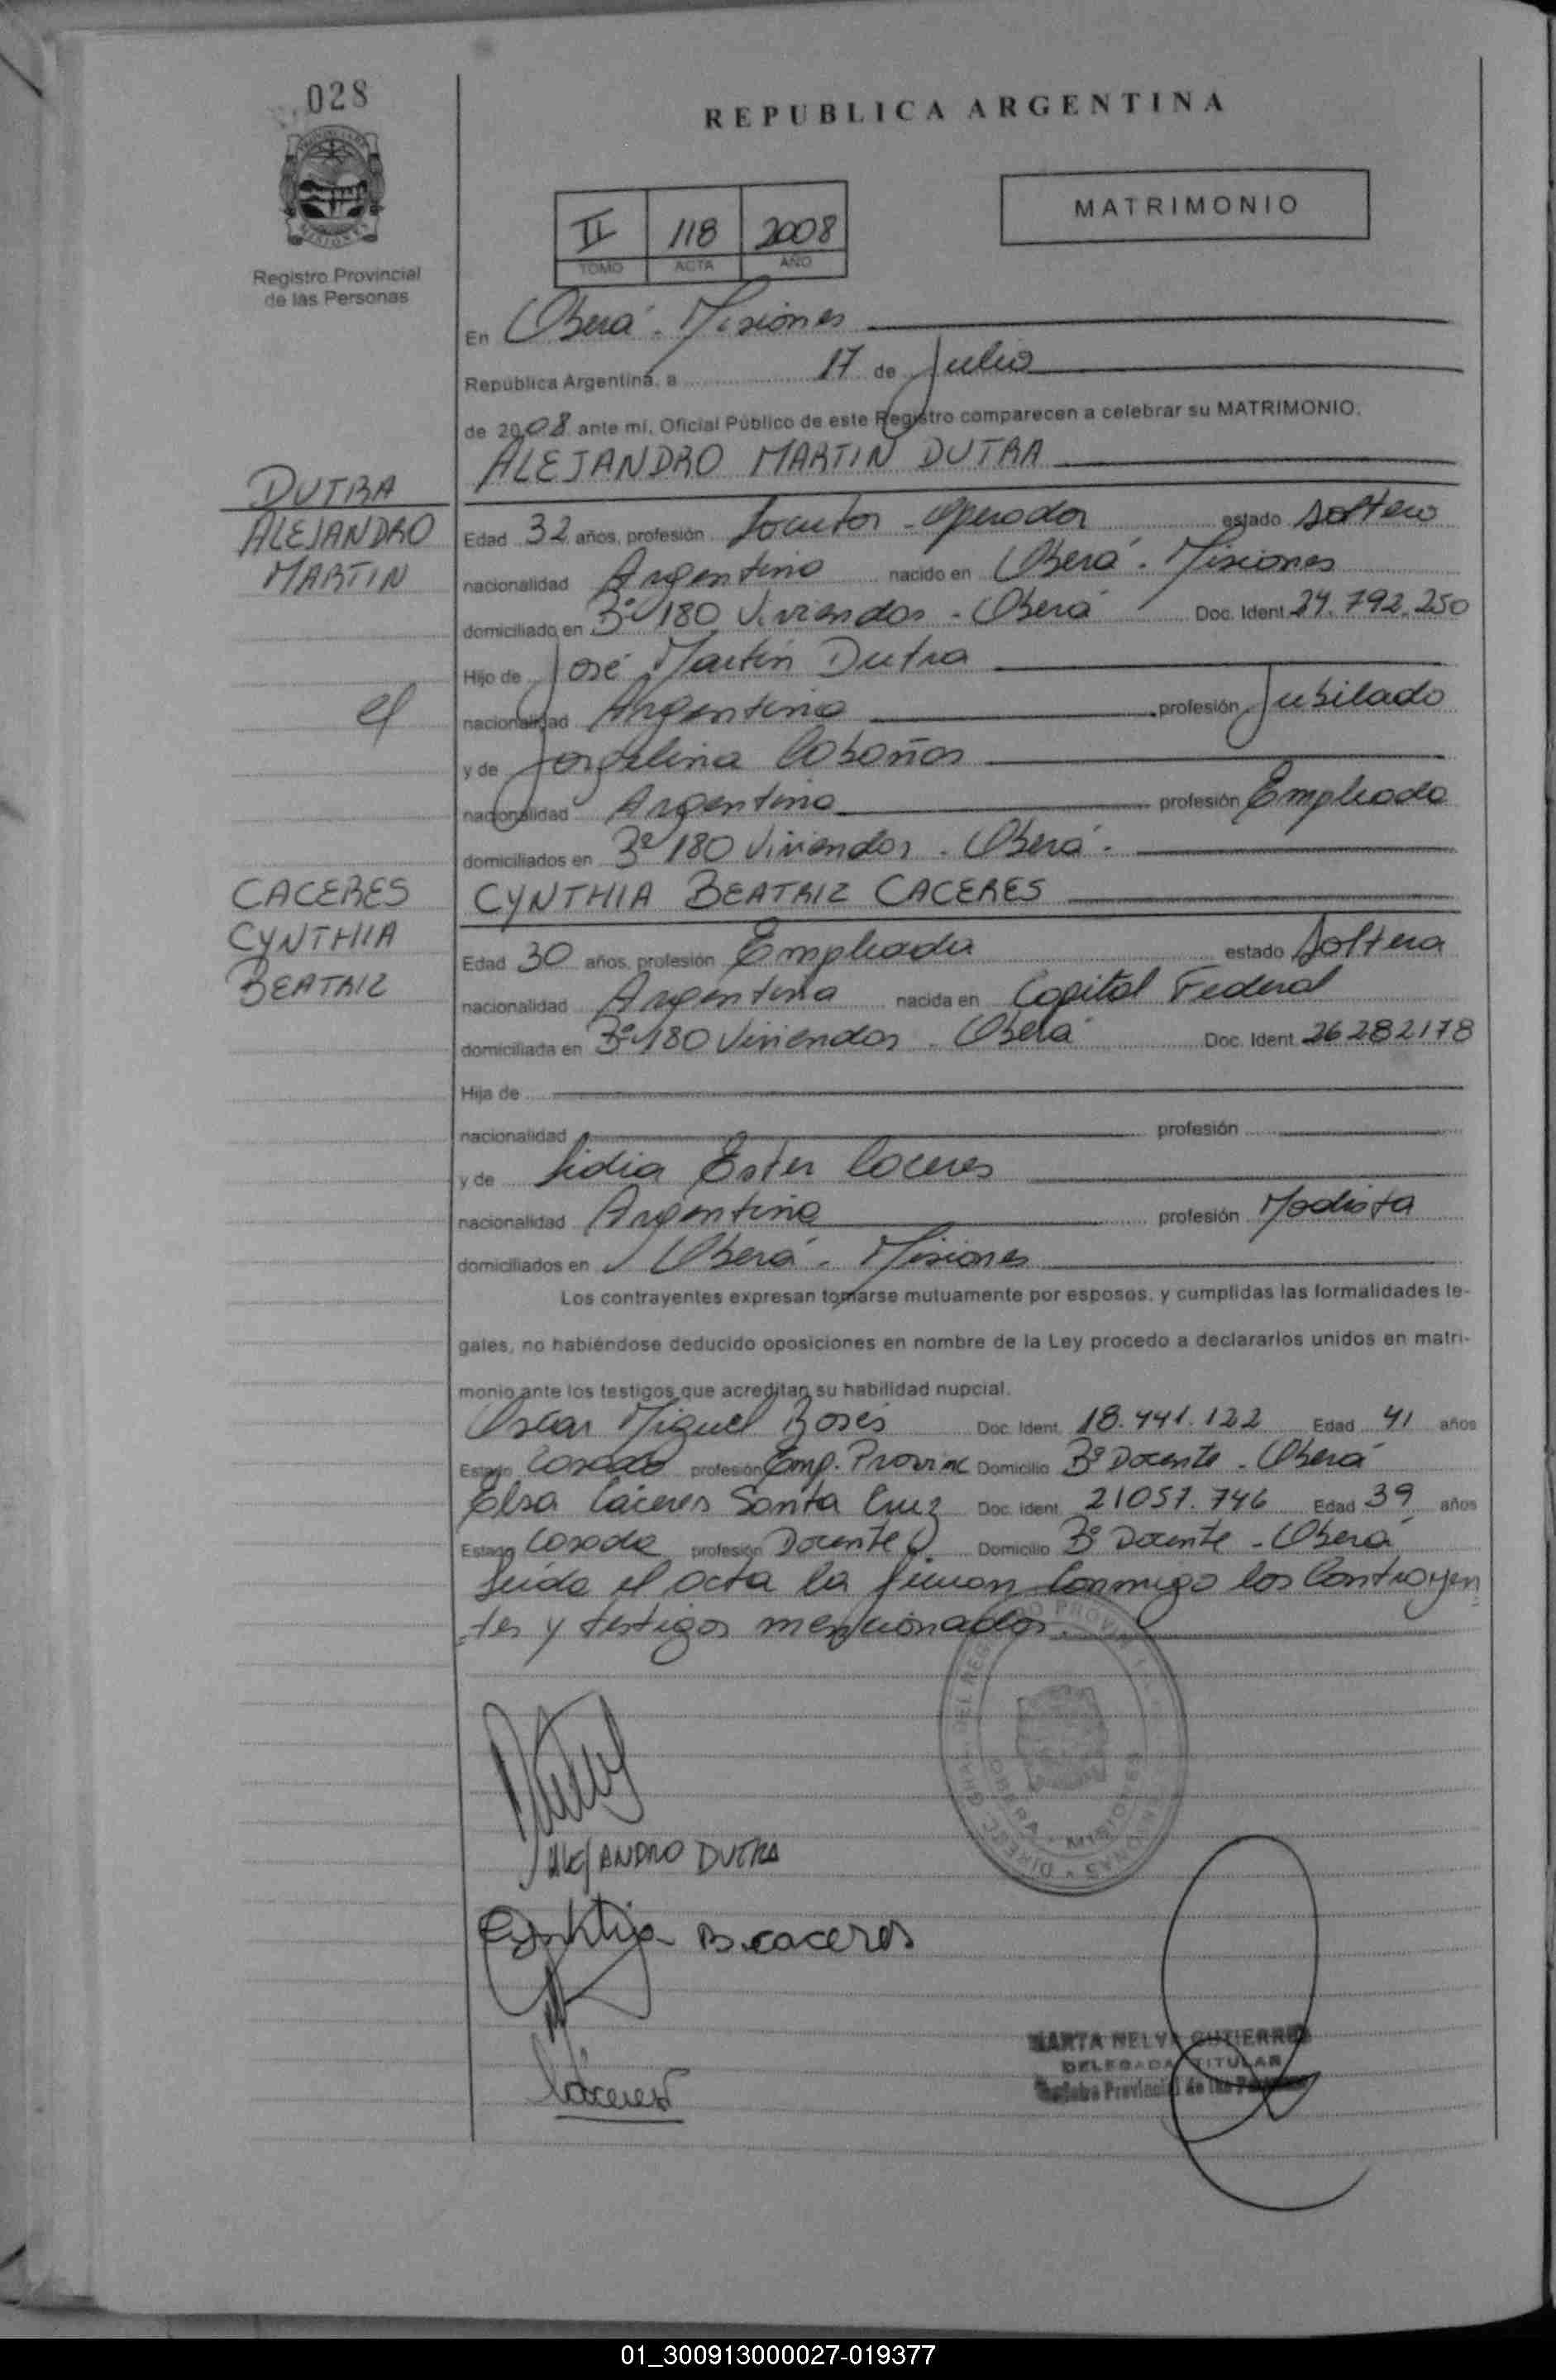 028
REPUBLICA ARGENTINA
MISIONES
Registro Provincial
de las Personas
II 118 2008
TOMO ACTA AÑO
MATRIMONIO
En Oberá - Misiones
República Argentina, a 17 de Julio
de 2008 ante mí, Oficial Público de este Registro comparecen a celebrar su MATRIMONIO.
ALEJANDRO MARTIN DUTRA
DUTRA
ALEJANDRO
MARTIN
Edad 32 años, profesión Locutor - Operador estado soltero
nacionalidad Argentino nacido en Oberá - Misiones
domiciliado en Bº 180 Viviendas - Oberá Doc. Ident. 24.792.250
Hijo de José Martín Dutra
nacionalidad Argentino profesión Jubilado
y de Jorgelina
nacionalidad Argentina profesión Empleada
domiciliados en Bº 180 Viviendas - Oberá -
CACERES
CYNTHIA
BEATRIZ
CYNTHIA BEATRIZ CACERES
Edad 30 años, profesión Empleada estado Soltera
nacionalidad Argentina nacida en Capital Federal
domiciliada en Bº 180 Viviendas - Oberá Doc. Ident. 26282178
Hija de
nacionalidad profesión
y de Lidia Ester Caceres
nacionalidad Argentina profesión Modista
domiciliados en Oberá - Misiones
Los contrayentes expresan tomarse mutuamente por esposos, y cumplidas las formalidades le-
gales, no habiéndose deducido oposiciones en nombre de la Ley procedo a declararlos unidos en matri-
monio ante los testigos que acreditan su habilidad nupcial.
Oscar Miguel Doc. Ident. 18.441.122 Edad 41 años
Estado Casado profesión Emp. Provinc Domicilio Bº Docente - Oberá
Elsa Cáceres Santa Cruz Doc. Ident. 21057.746 Edad 39 años
Estado Casada profesión Docente Domicilio Bº Docente - Oberá
Leída el acta la firman conmigo los Contrayen
tes y testigos mencionados.
OBERA - MISIONES
ALEJANDRO DUTRA
Cynthia B. caceres
Cáceres
MARTA NELVA GUTIERREZ
DELEGADA TITULAR
Provincial de las
01_300913000027-019377